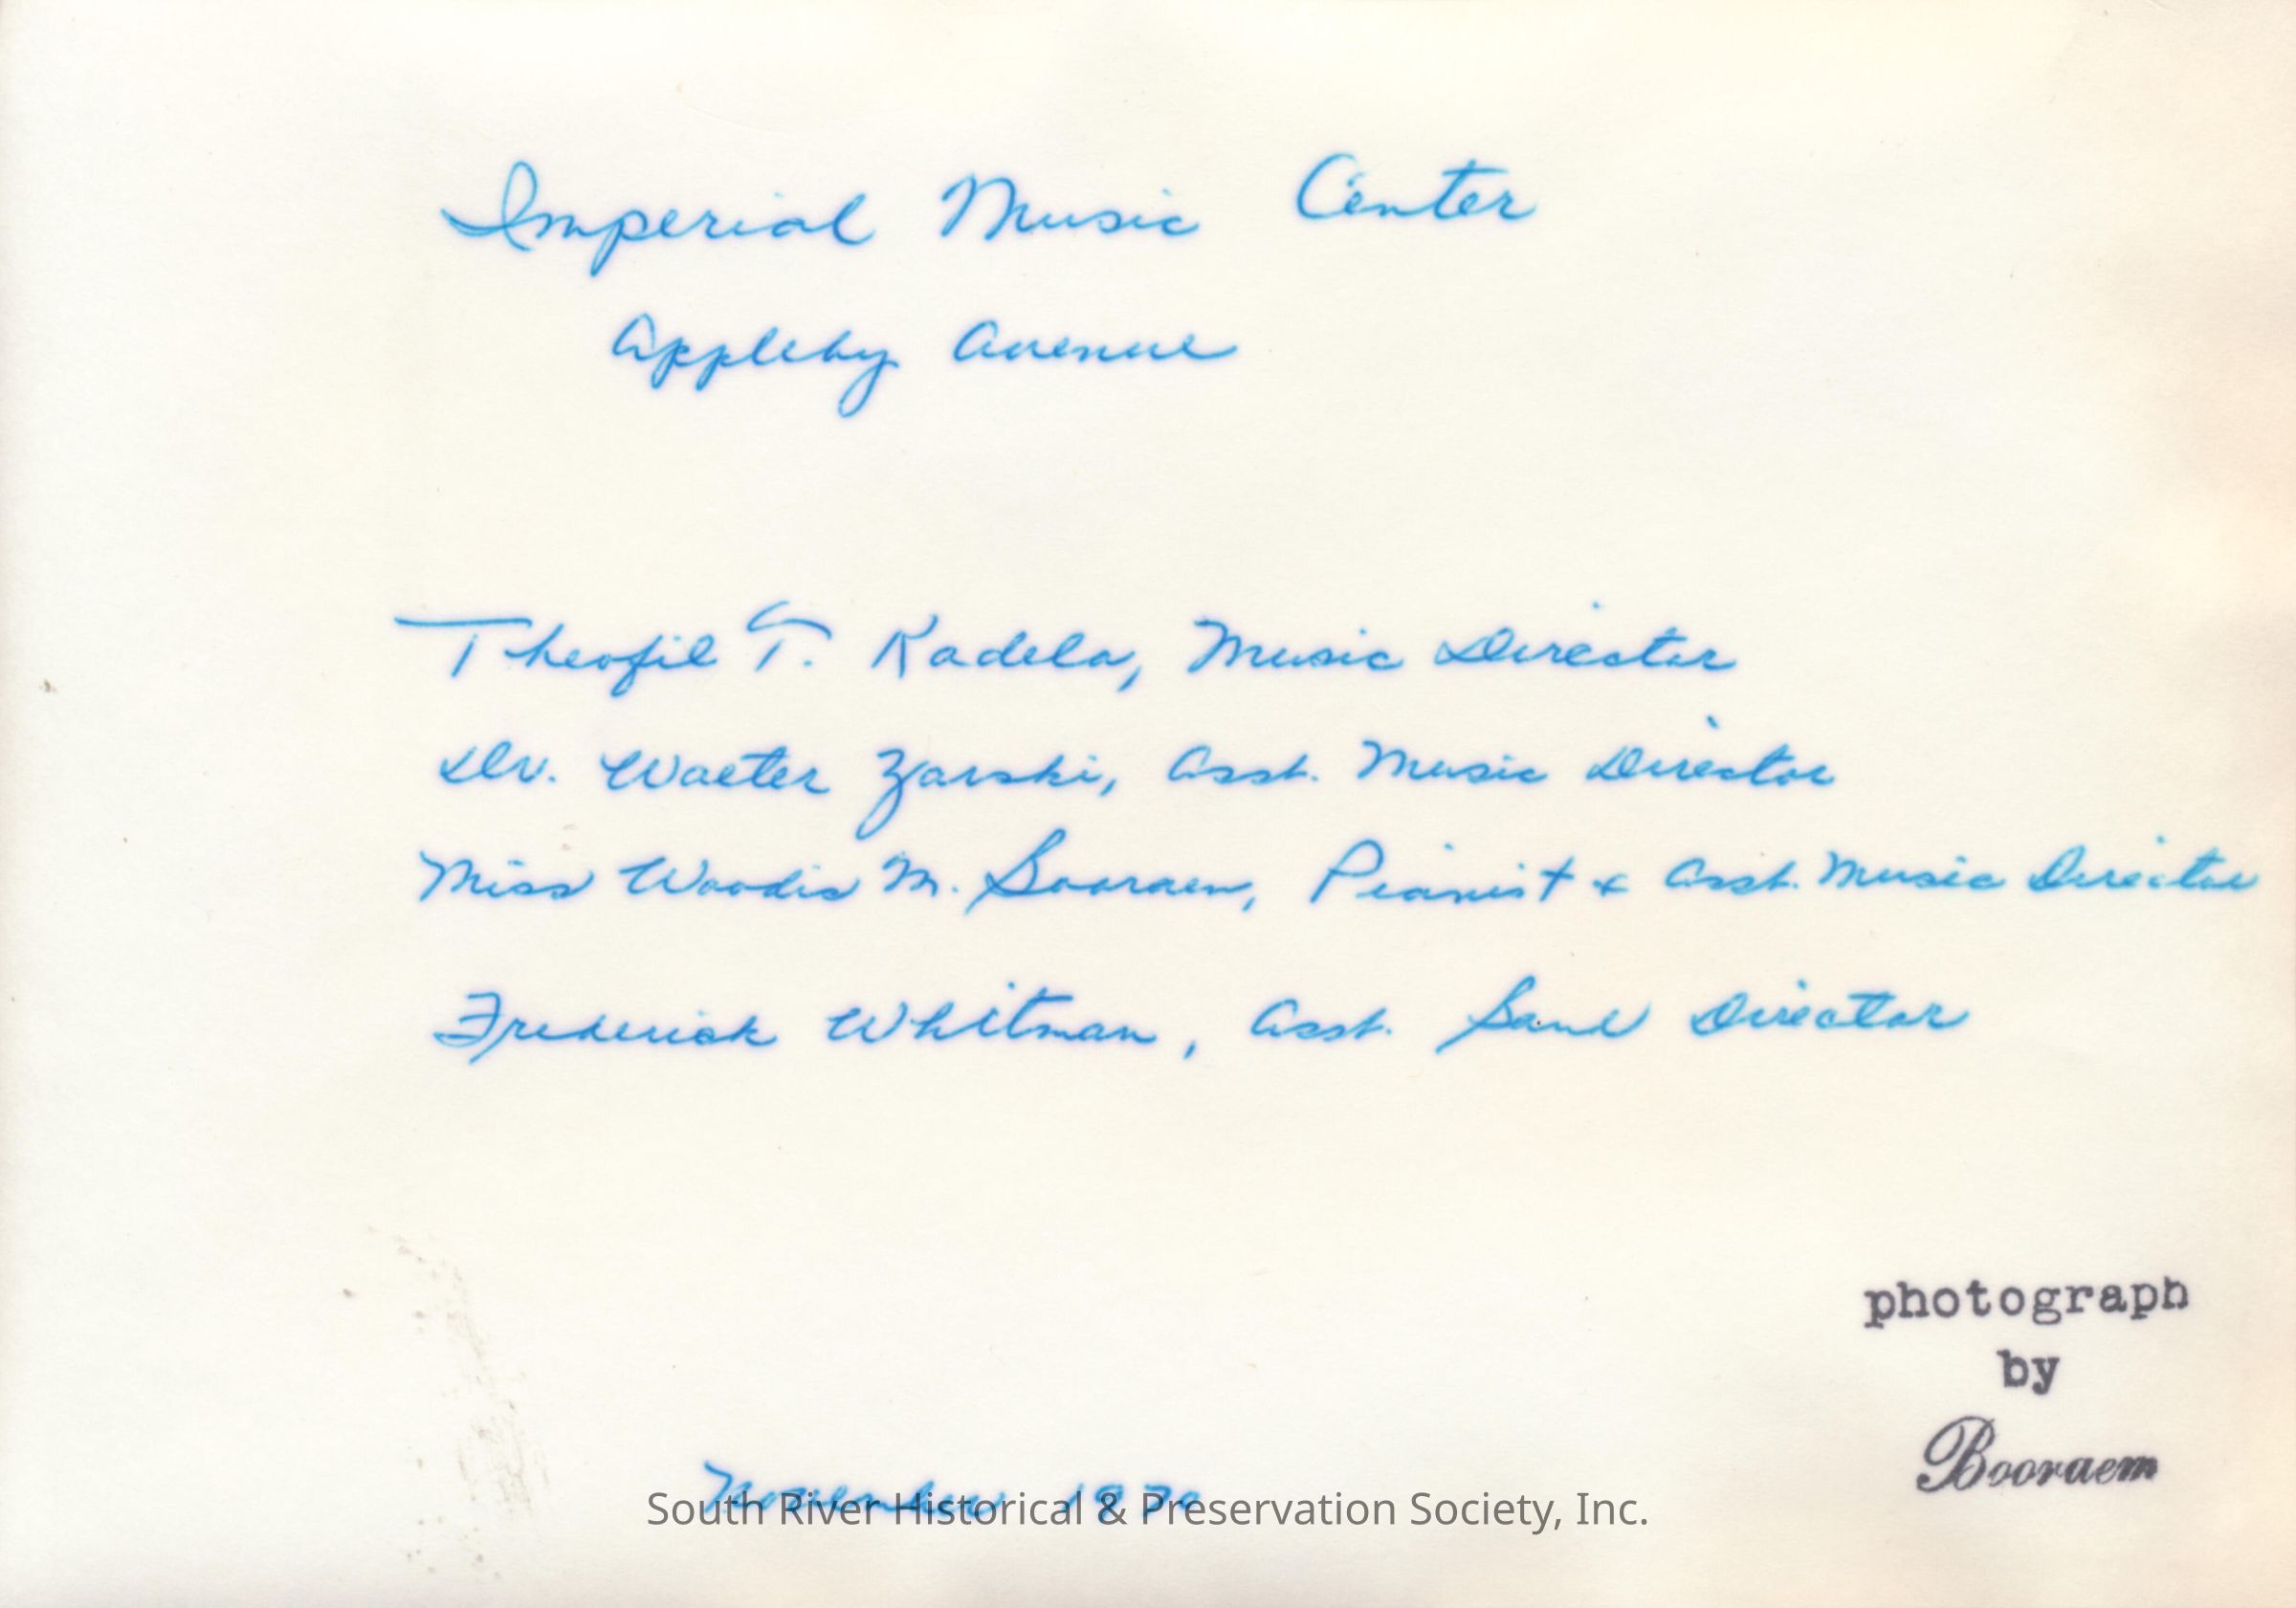 Imperial Music Center
Appleby Avenue
Theofil T. Kadela, Music Director
Dr. Walter Zarski, Asst. Music Director
Miss Woodie M. Booraem, Pianist & Asst. Music Director
Frederick Whitman, Asst. Band Director
photograph
by
Booraem
November
South River Historical & Preservation Society, Inc.